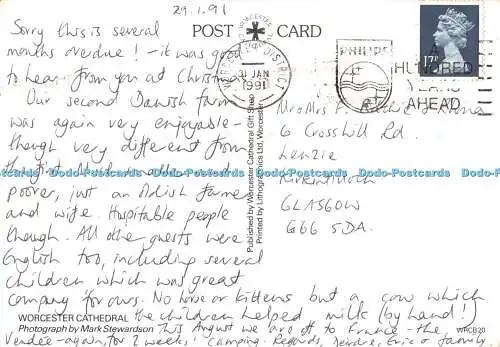 29.1.91
Sorry this is several
months overdue! - it was good
to hear from you at Christmas.
Our second Danish farm
was again very enjoyable -
though very different from
the first. Much smaller and
poorer, just an oldish farmer
and wife. Hospitable people
though. All the guests were
English too, including several
children which was great
company for ours. No horse or kittens but a cow which
the children helped milk (by hand!)
This August we are off to France - the
Vendee - again, for 2 weeks' camping. Regards, Deirdre, Eric & family.
WORCESTER CATHEDRAL
Photograph by Mark Stewardson
POST CARD
Published by Worcester Cathedral Gift Shop
Printed by Lithographics Ltd, Worcester
WORCESTER
DISTRICT
31 JAN
1991
PHILIPS
A
HUNDRED
YEARS
AHEAD
17P
Mr & Mrs F.
6 Crosshill Rd.
Lenzie
Kirkintilloch
GLASGOW
G66 5DA.
WRCB20
Dodo-Postcards.com